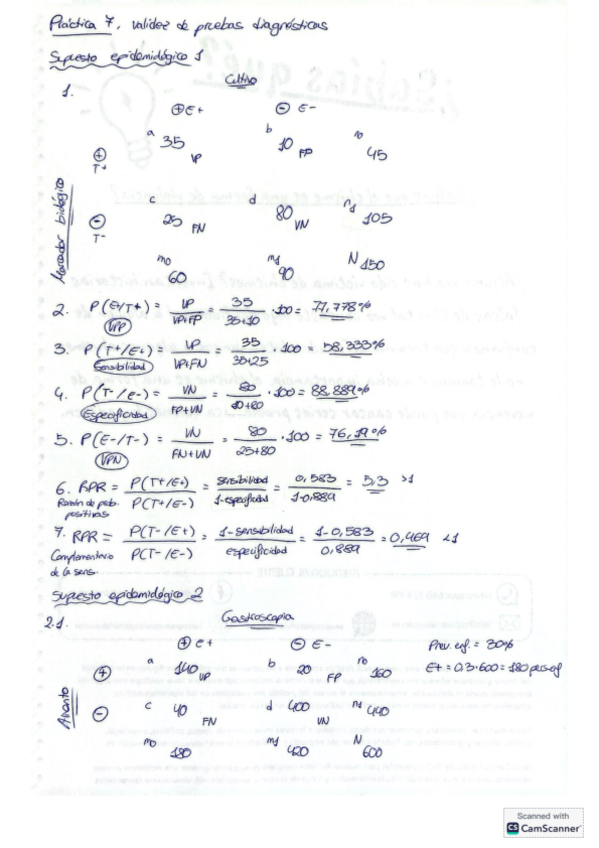 Práctica 7. Validez de pruebas diagnósticas
Supuesto epidemiológico 1
1.
Cultivo
⊕ E+ ⊖ E-
Marcador biológico
⊕ T+ a 35 VP b 10 FP no 45
⊖ T- c 25 FN d 80 VN n1 105
mo 60 m1 90 N 150
2. P(E+/T+) = VP / VP+FP = 35 / 35+10 · 100 = 77,778%
VPP
3. P(T+/E+) = VP / VP+FN = 35 / 35+25 · 100 = 58,333%
Sensibilidad
4. P(T-/e-) = VN / FP+VN = 80 / 10+80 · 100 = 88,889%
Especificidad
5. P(E-/T-) = VN / FN+VN = 80 / 25+80 · 100 = 76,19%
VPN
6. RPR = P(T+/E+) / P(T+/E-) = sensibilidad / 1-especificidad = 0,583 / 1-0,889 = 5,3 >1
Razón de prob. positivas
7. RPR = P(T-/E+) / P(T-/E-) = 1-sensibilidad / especificidad = 1-0,583 / 0,889 = 0,469 <1
Complementario de la sens.
Supuesto epidemiológico 2
2.1.
Gastroscopia
⊕ E+ ⊖ E-
Prev. enf. = 30%
E+ = 0.3·600 = 180
Aliento
⊕ a 140 VP b 20 FP no 160
⊖ c 40 FN d 400 VN n1 440
mo 180 m1 420 N 600
Scanned with
CS CamScanner